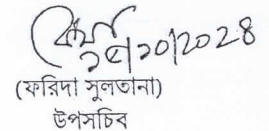 ২৫/১০/২০২৪
(ফরিদা সুলতানা)
উপসচিব